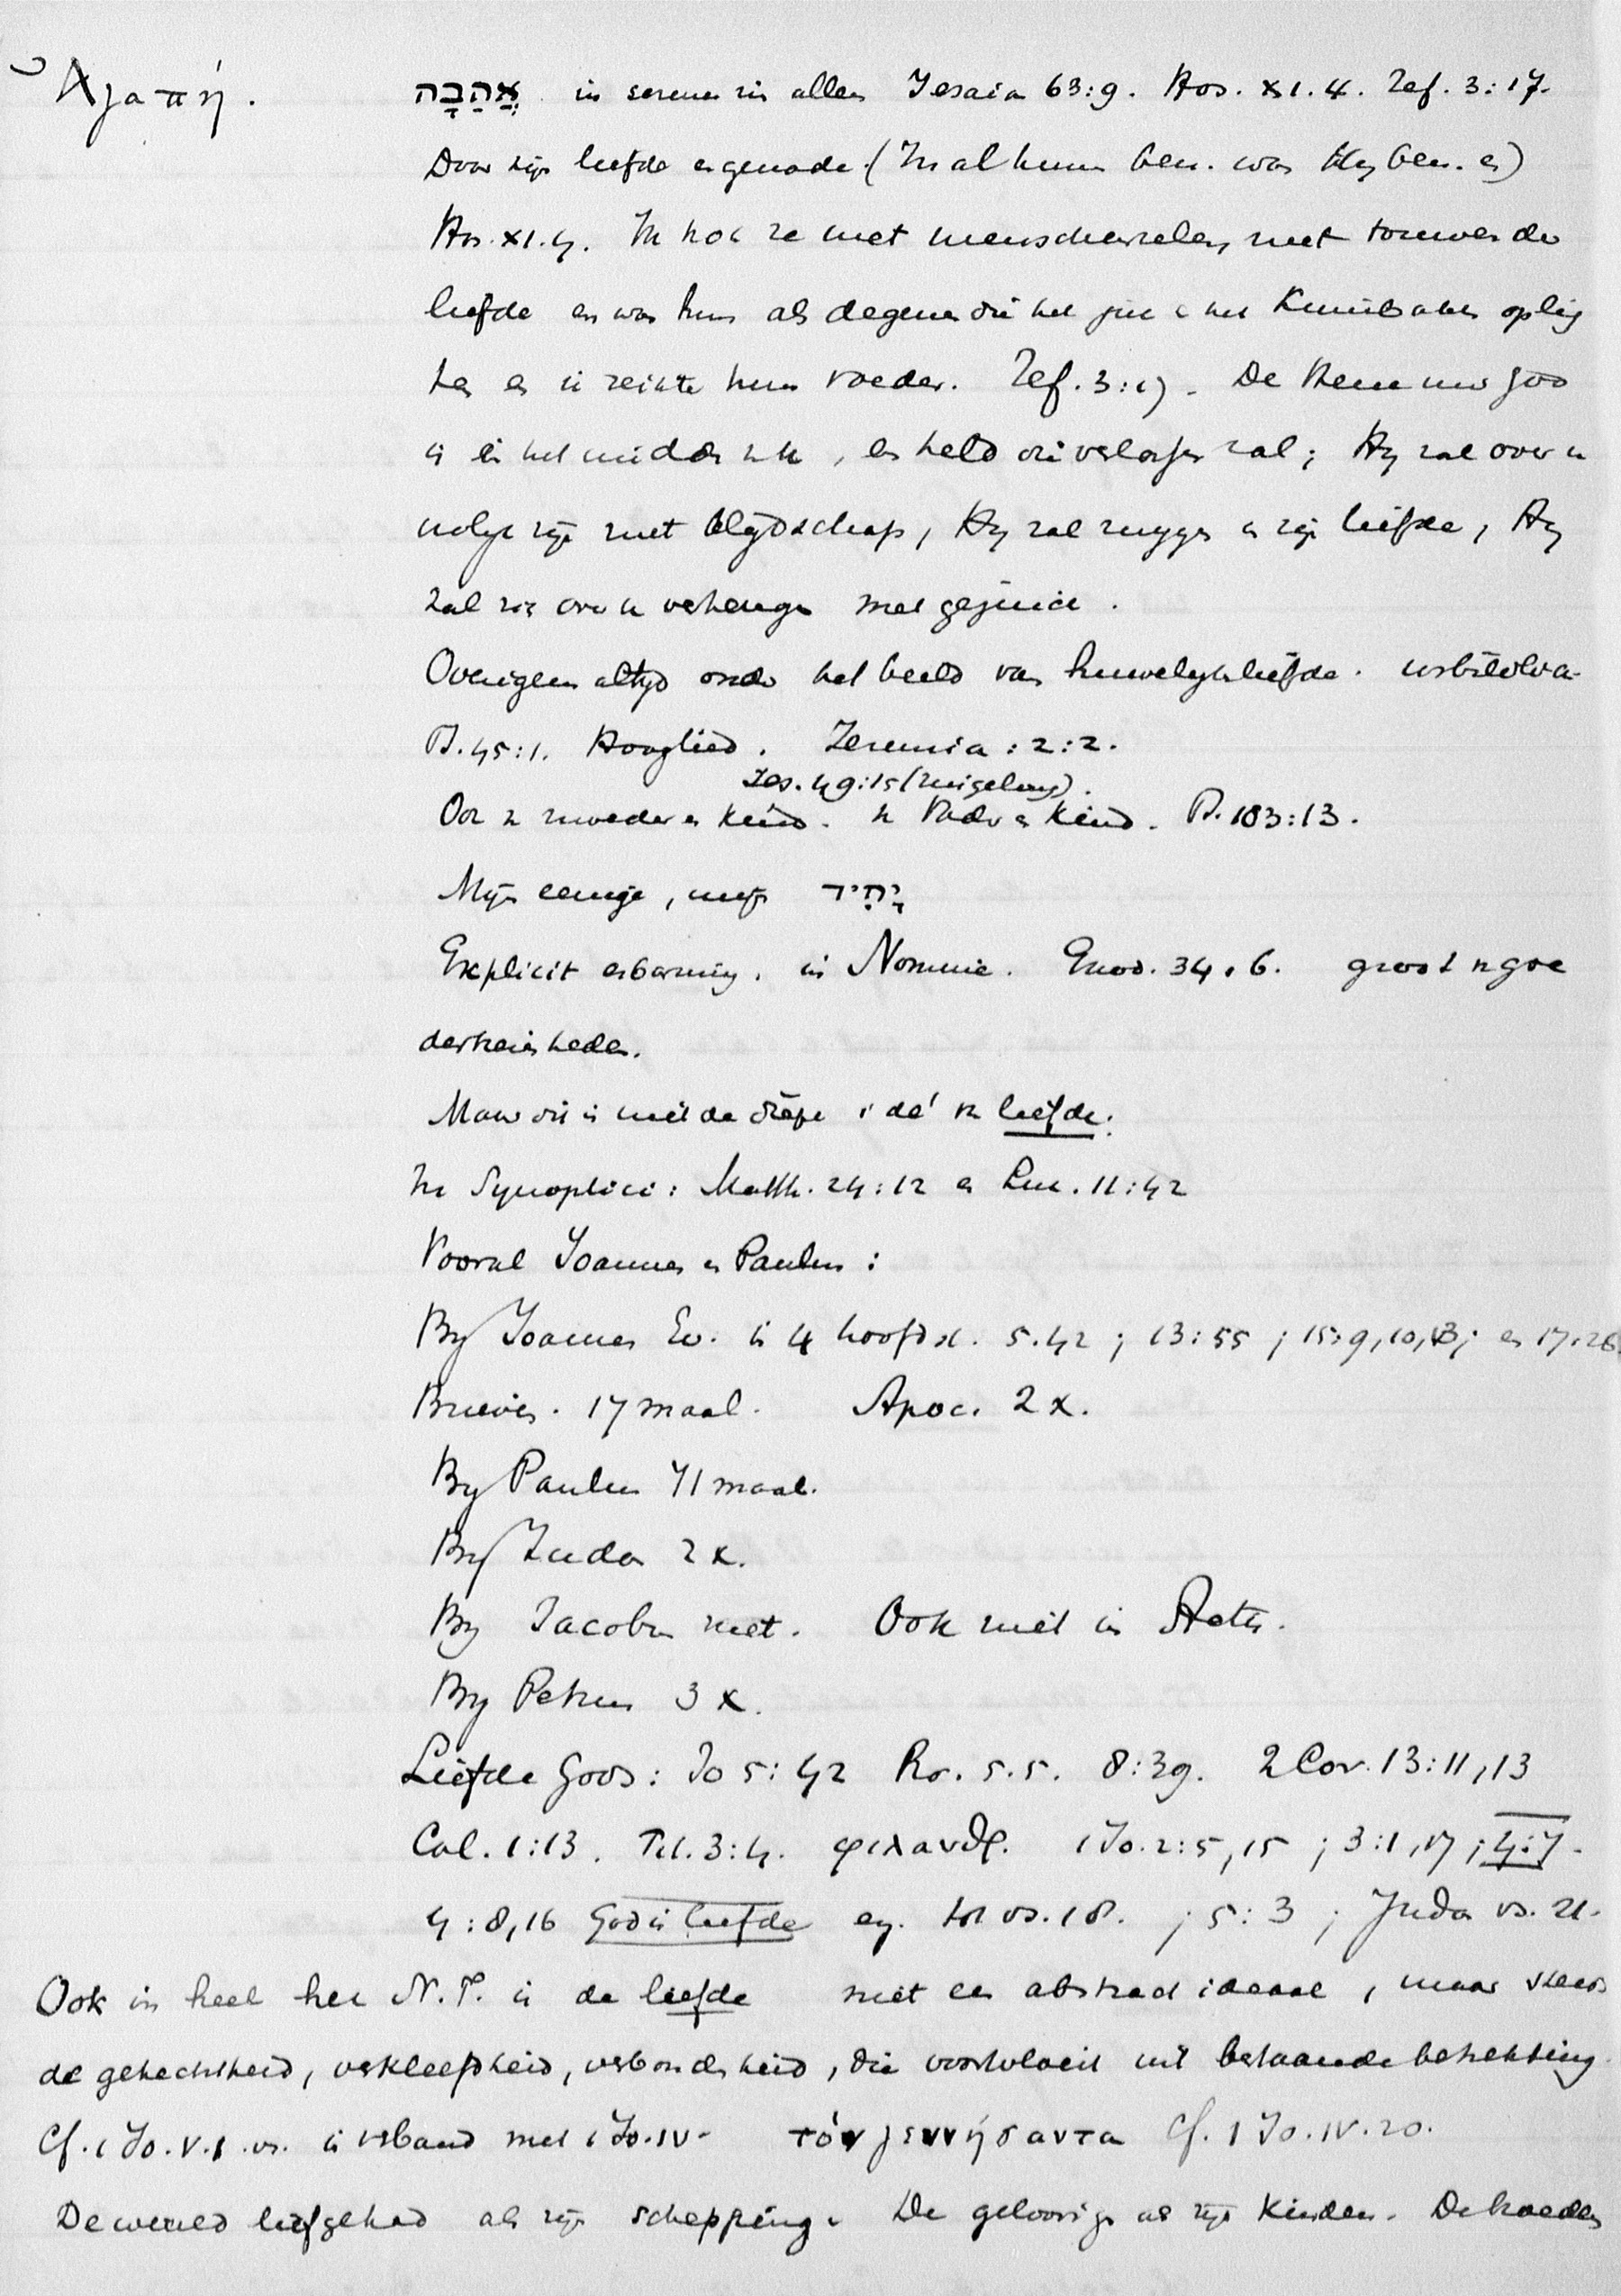 Ἀγαπή. אֲהַבָה in allen Jesaia 63:9. Hos. XI.4. Zef. 3:17.
Door zijn liefde en genade (In al hunne ben. was Hy ben. en)
Hos. XI.4. Ik trok ze met menschenzelen, met touwen der
liefde en was hun als degenen die het juk v. het Kinnebakken oplig
ten en ik reikte hun voeder. Zef. 3:17. De Heere uw God
is in het midden v. u, en held die verlossen zal; Hy zal over u
vrolyk zijn met blydschap, Hy zal zwygen in zijn liefde, Hy
zal zich over u verheugen met gejuich.
Overigens altyd onder het beeld van huwelyksliefde.
Ps. 45:1. Hooglied. Jeremia: 2:2.
Jes. 49:15 (zuigeling).
Ook v. moeder en Kind. v. Vader en Kind. Ps. 103:13.
Mijn eenige, mijn יָחִיד
Explicit erbarming, in Nomine. Exod. 34.6. groot v. goe
dertierenheden.
Maar dit is niet de diepe idé v. liefde.
In Synoptici: Matth. 24:12 en Luc. 11:42
Vooral Joannes en Paulus:
By Joannes Ev. in 4 hoofdst. 5.42; 13:55; 15:9,10,13; en 17.26.
Brieven. 17 maal. Apoc. 2 x.
By Paulus 71 maal.
By Juda 2 x.
By Jacobus niet. Ook niet in Acta.
By Petrus 3 x.
Liefde Gods: Jo 5:42 Ro. 5.5. 8:39. 2 Cor. 13:11,13
Col. 1:13. Tit. 3:4. φιλανθρ. 1 Jo. 2:5,15; 3:1,17; 4:7.
4:8,16 God is liefde en. tot vs. 18.; 5:3; Juda vs. 21.
Ook in heel het N.T. is de liefde niet een abstract ideaal, maar steeds
de gehechtheid, verkleefdheid, verbondenheid, die voortvloeit uit bestaande betrekking.
Cf. 1 Jo. V.1. vs. in verband met 1 Jo. IV. τόν γεννήσαντα Cf. 1 Jo. IV. 20.
De wereld liefgehad als zijn schepping. De geloovigen als zijn Kinderen. De broeders